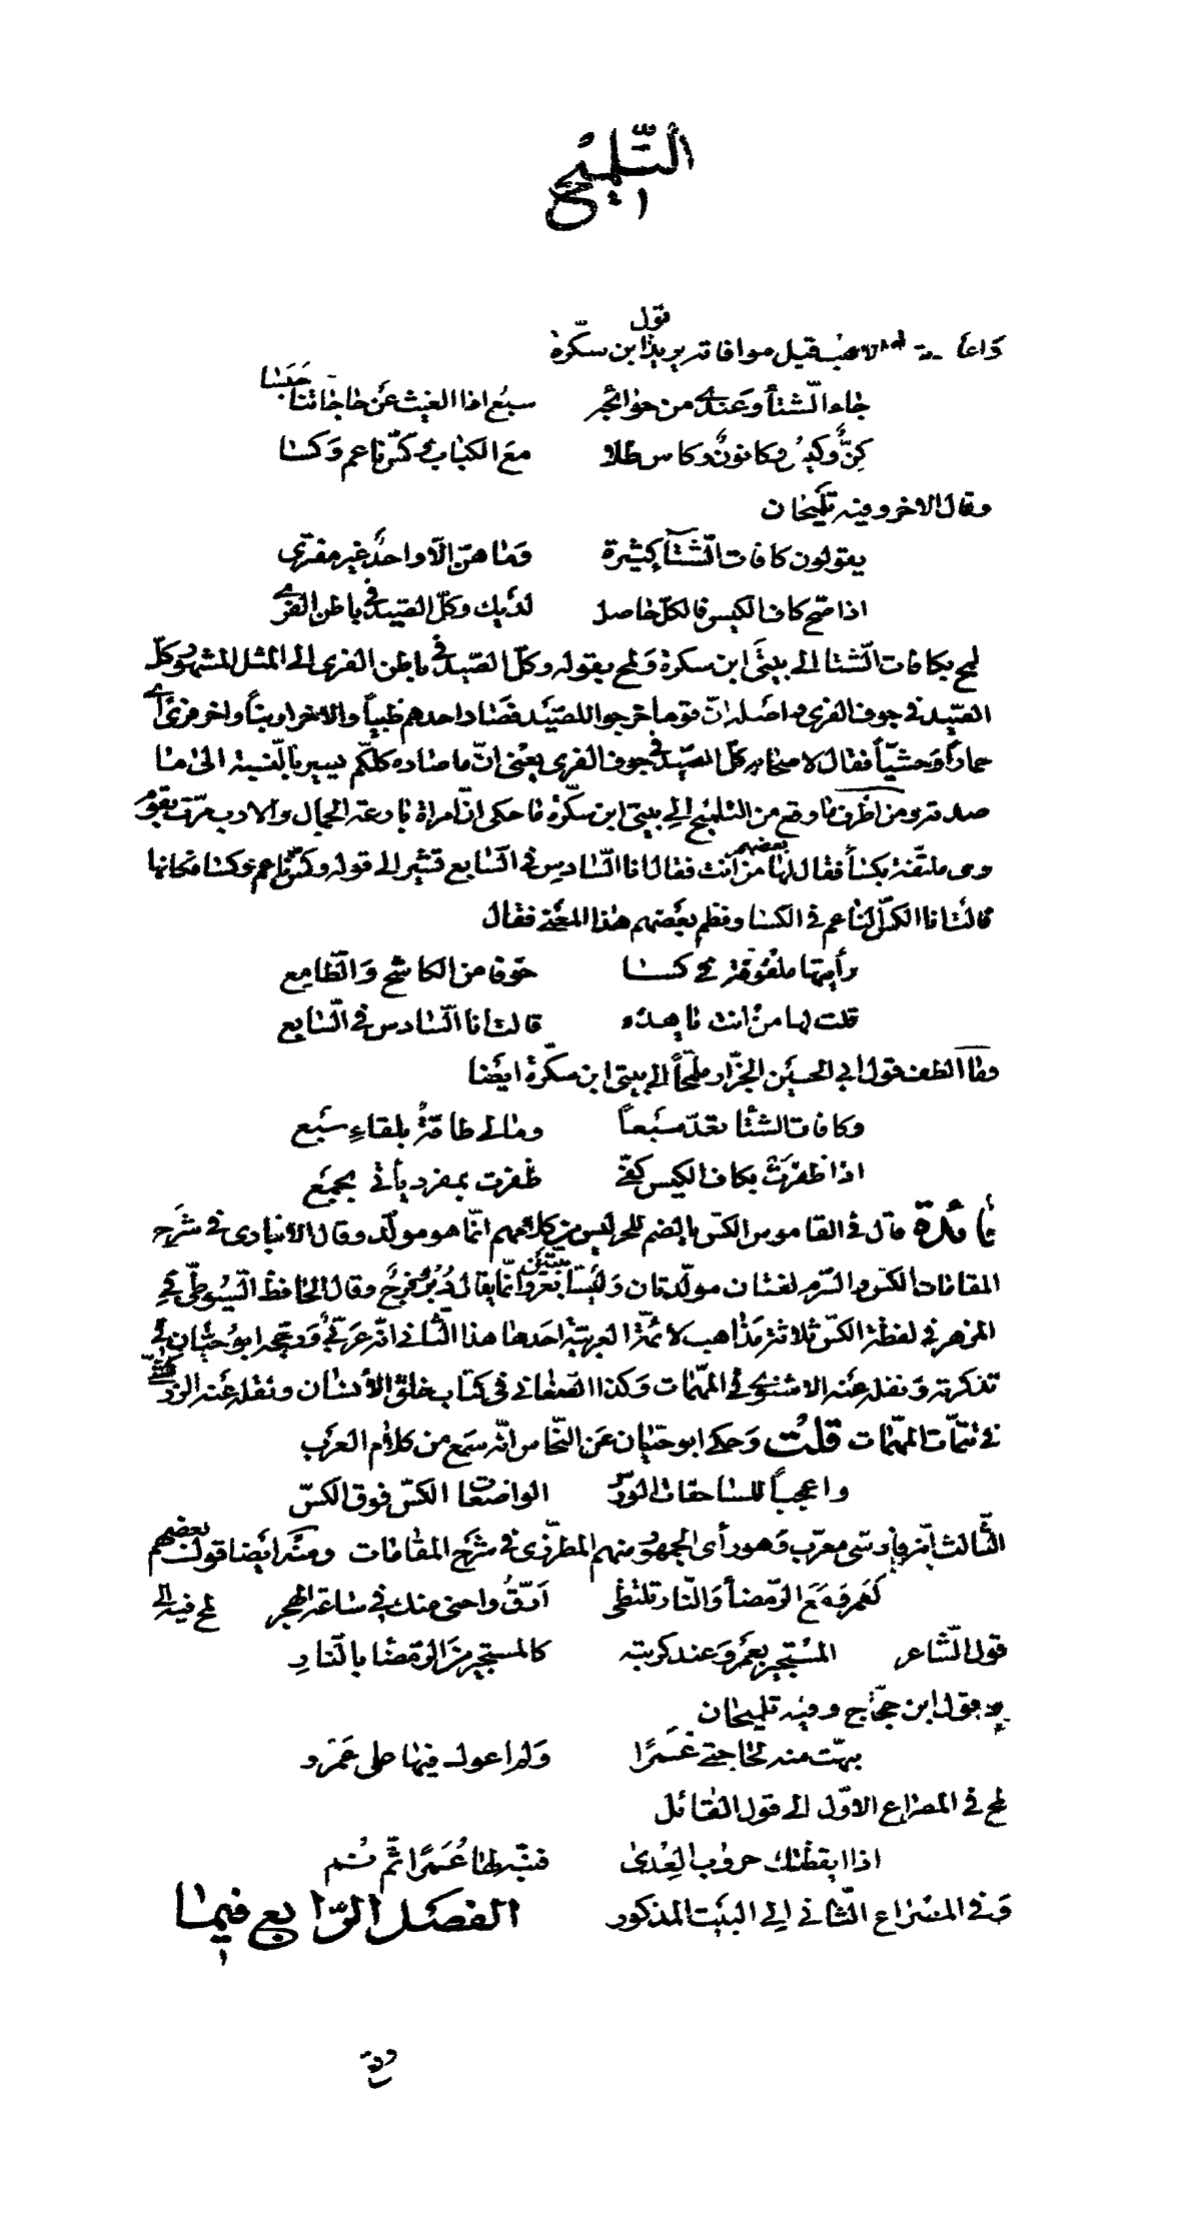 التلميح
قول
ابن سكرة
جاء الشتاء وعندي من حوائجه سبع اذا الغيث عن حاجاتنا حبسا
كنٌّ وكيسٌ وكانونٌ وكاس طلا مع الكباب وكسّ ناعم وكسا
وقال الاخر وفيه تلميحان
يقولون كافات الشتاء كثيرة وما هنّ الّا واحدٌ غير مفترى
اذا صحّ كاف الكيس فالكل حاصل لديك وكلّ الصيد في باطن الفرى
لمح بكافات الشتا الى بيتي ابن سكرة ولمح بقوله وكلّ الصيد في باطن الفرى الى المثل المشهور كلّ
الصيد في جوف الفرى واصله انّ قوما خرجوا للصيد فصاد احدهم ظبياً والاخر ارنباً واخر فرئ أي
حماراً وحشيّاً فقال لاصحابه كلّ الصيد في جوف الفرى يعني انّ ما صاده كلّكم يسير بالنسبة الى ما
صدته ومن اظرف ما وقع من التلميح الى بيتي ابن سكّرة ما حكى انّ امراة بارعة الجمال والادب مرّت بقوم
وهى ملتفّة بكسأ فقال لها بعضهم من انت فقالت انا السّادس في السّابع تشير الى قوله وكسّ ناعم وكسا فكانها
قالت انا الكسّ الناعم في الكسا ونظم بعضهم هذا المعنى فقال
رأيتها ملفوفة في كسا خوفا من الكاشح والطّامع
قلت لها من انت يا هذه قالت انا السّادس في السّابع
وما الطف قول ابي الحسين الجزّار ملمّحاً الى بيتي ابن سكّرة ايضا
وكافات الشتا تعدّ سبعاً ومالي طاقةٌ بلقاءِ سبع
اذا ظفرَت بكاف الكيس كفّي ظفرت بمفرد يأتي بجمع
فائدة قال في القاموس الكسّ بالضم للحر ليس من كلامهم انّما هو مولّد وقال الانبارى في شرح
المقامات الكسّ والسّرم لغتان مولّدتان وليستا بعربيّتين وانّما يقال دُبُرٌ وفرجٌ وقال الحافظ السّيُوطي في
المزهر في لفظة الكسّ ثلاثة مذاهب لائمّة العربيّة احدها هذا الثّاني انّه عربيّ ورجّحه ابو حيّان في
تذكرته ونقله عنه الاسنوي في المهمّات وكذا الصّغاني في كتاب خلق الأنسان ونقله عنه الزركشيّ
في تتمّات المهمّات قلت وحكى ابو حيّان عن النحّاس انّه سمع من كلام العرب
واعجباً للساحقات الورس الواضعات الكسّ فوق الكسّ
الثّالث انّه فارسى معرّب وهو رأى الجمهور منهم المطرّزى في شرح المقامات ومنه ايضا قول بعضهم
لعمرو مع الرّمضأ والنّار تلتظى ارقّ واحنى منك في ساعة الهجر لمح فيه الى
قول الشّاعر المستجير بعمرو عند كربته كالمستجير من الرّمضا بالنّارِ
وقول ابن حجّاج وفيه تلميحان
نبهّت منه لحاجتي عُمَرًا ولم اعول فيها على عَمْرو
لمح في المصراع الاوّل الى قول القائل
اذا ايقظتك حروب العِدى فنبّه لها عُمَرًا ثمّ نم
وفي المصراع الثّاني الى البيت المذكور الفصل الرّابع فيما